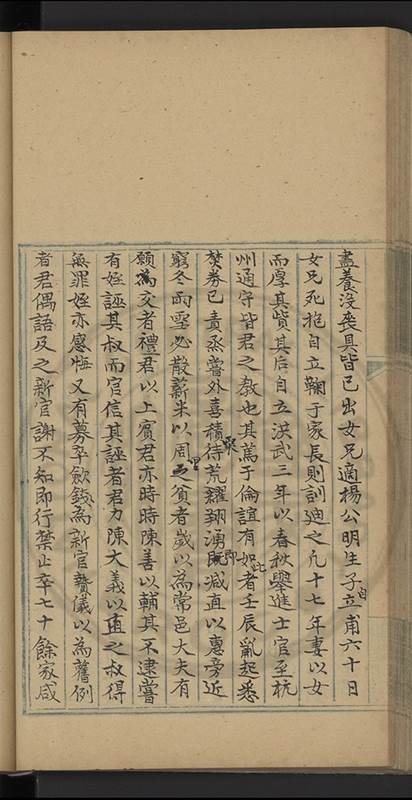 盡養沒喪具皆已出女兄適楊公明生子自立甫六十日
女兄死抱自立鞠于家長則訓廸之凡十七年妻以女
而厚其貲其后自立洪武三年以春秋舉進士官至杭
州通守皆君之教也其篤于倫誼有如此者壬辰亂起悉
焚券已責烝嘗外喜積穀待荒糴翔湧即既減直以惠旁近
窮冬雨雪必散薪米以周里之貧者歲以為常邑大夫有
願為交者禮君以上賓君亦時時陳善以輔其不逮嘗
有姪誣其叔而官信其誣者君力陳大義以直之叔得
無罪姪亦感悔又有募卒飲錢為新官贄儀以為舊例
者君偶語及之新官謝不知即行禁止卒七十餘家咸